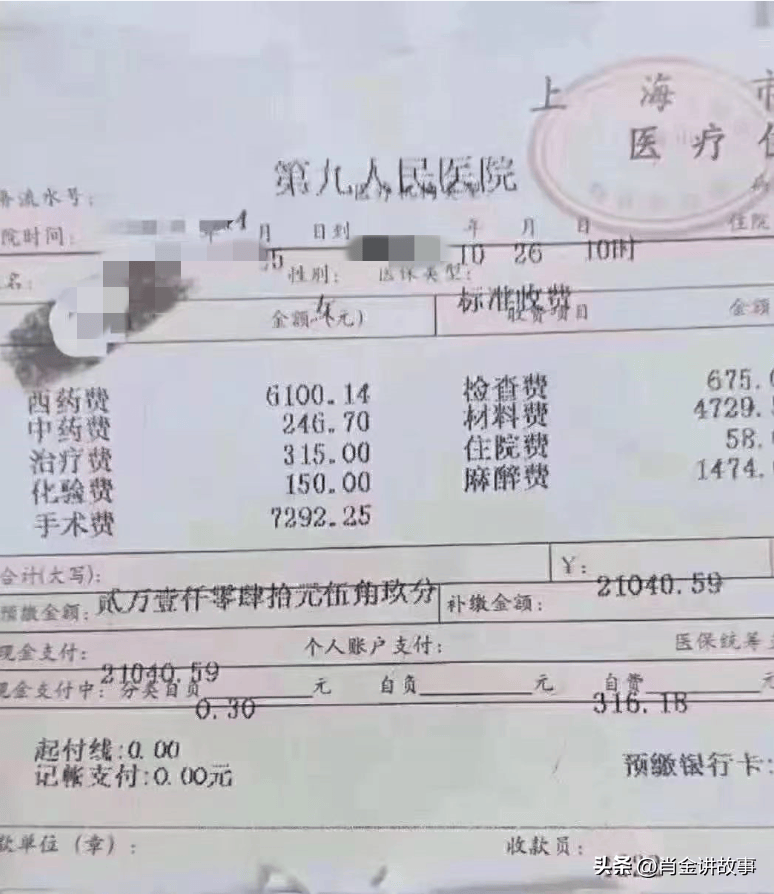 上 海 市
医 疗 住
第九人民医院
流水号：
院时间： 年 月 日到 年 月 日 住院
10 26 10时
名： 性别： 医保类型：
标准收费
金额（元） 收费项目 金额
西药费 6100.14 检查费 675.
中药费 246.70 材料费 4729.
治疗费 315.00 住院费 58.
化验费 150.00 麻醉费 1474.
手术费 7292.25
合计(大写)： ¥： 21040.59
贰万壹仟零肆拾元伍角玖分
预缴金额： 补缴金额：
现金支付： 个人账户支付： 医保统筹
21040.59
现金支付中：分类自负 元 自负 元 自费 元
0.30 316.18
起付线:0.00
记帐支付:0.00元 预缴银行卡:
款单位（章）： 收款员：
头条 @肖金讲故事